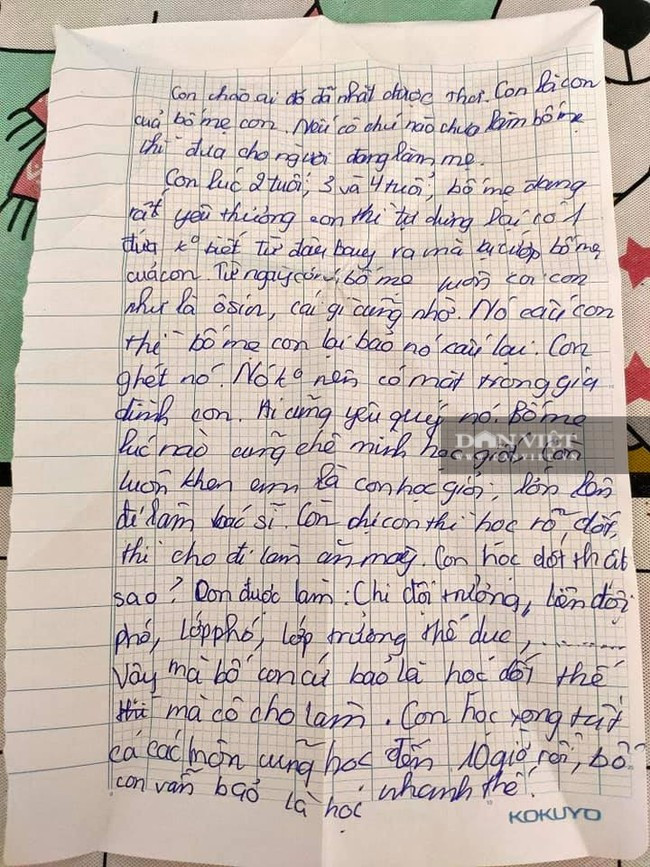 Con chào ai đó đã nhặt được thư. Con là con
của bố mẹ con. Nếu cô chú nào chưa làm bố mẹ
thì đưa cho người đang làm mẹ.
Con lúc 2 tuổi, 3 và 4 tuổi, bố mẹ đang
rất yêu thương con thì tự dưng lại có 1
đứa k° biết từ đâu bay ra mà lại cướp bố mẹ
của con. Từ ngày có nó, bố mẹ luôn coi con
như là ôsin, cái gì cũng nhờ. Nó cấu con
thì bố mẹ con lại bảo nó cấu lại. Con
ghét nó. Nó k° nên có mặt trong gia
đình con. Ai cũng yêu quý nó. Bố mẹ
lúc nào cũng chê mình học giỏi. Còn
luôn khen em là con học giỏi, lớn lên
đi làm bác sĩ. Còn chị con thì học rõ dốt,
thì cho đi làm ăn mày. Con học dốt thật
sao? Con được làm: Chi đội trưởng, liên đội
phó, lớp phó, lớp trưởng thể dục, ..........
Vậy mà bố con cứ bảo là học dốt thế
thì mà cô cho làm. Con học xong tất
cả các môn cũng học đến 10 giờ rồi, bố
con vẫn bảo là học nhanh thế!
KOKUYO
DÂN VIỆT